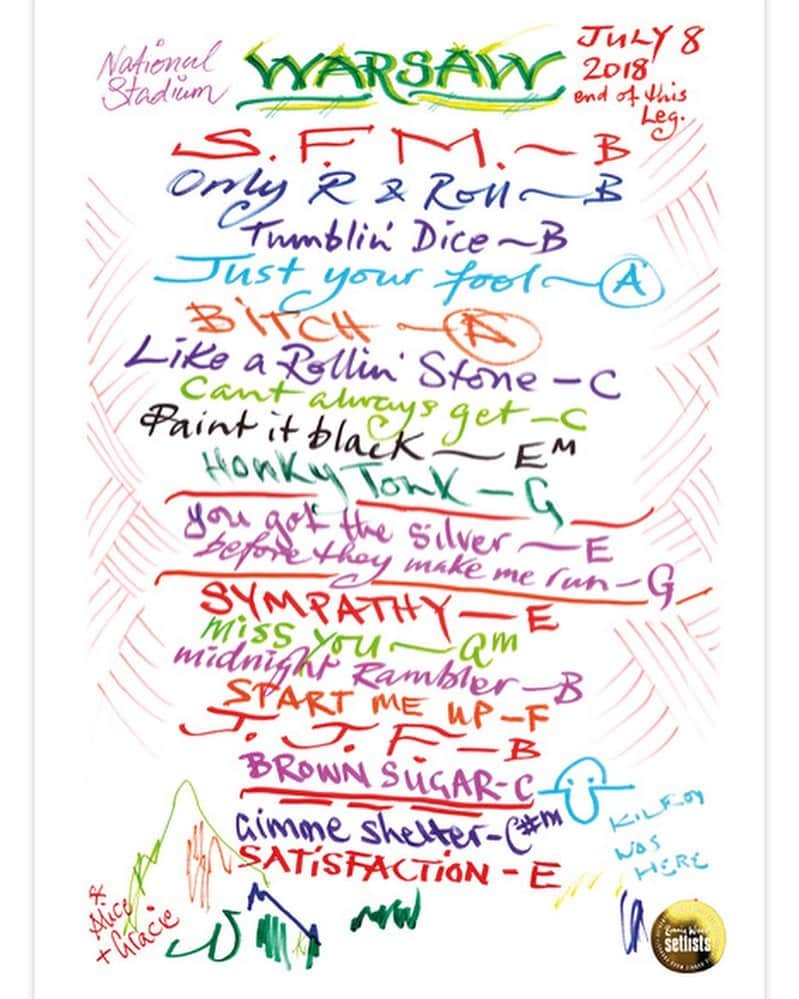 National
Stadium
WARSAW
JULY 8
2018
end of this
Leg.
S.F.M. ~ B
Only R & Roll ~ B
Tumblin' Dice ~ B
Just your fool ~ A
BITCH ~ A
Like a Rollin' Stone - C
Cant always get - C
Paint it black - EM
Honky Tonk - G
you got the silver - E
before they make me run - G
SYMPATHY - E
Miss you ~ am
midnight Rambler - B
START ME UP - F
J.J.F. - B
BROWN SUGAR - C
Gimme shelter - C#m
SATISFACTION - E
KILROY
WAS
HERE
& Alice
+ Gracie
setlists